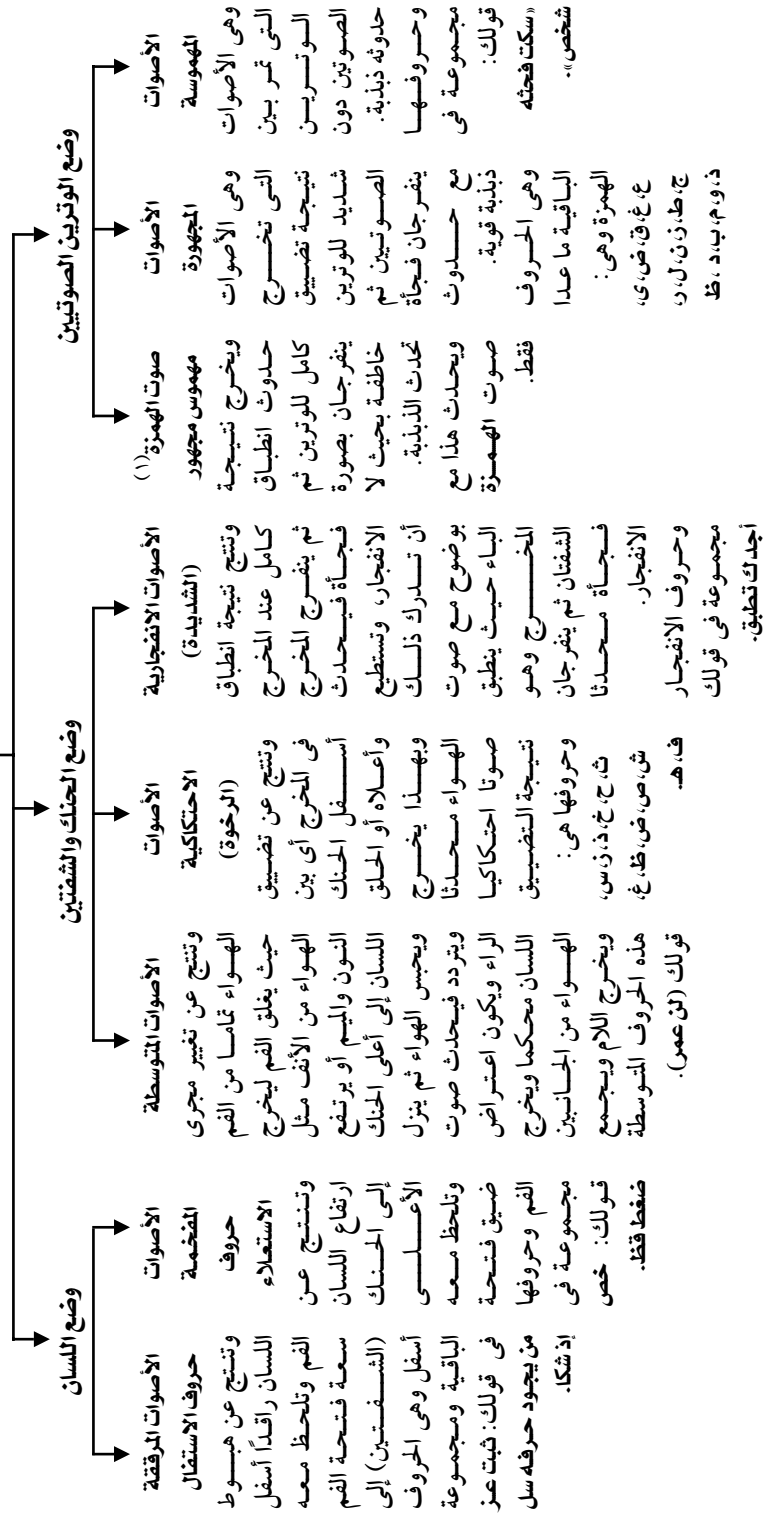 وضع الوترين الصوتيين
الأصوات
المهموسة
وهى الأصوات
التى تمر بين
الوتــريــن
الصوتين دون
حدوثه ذبذبة.
وحـروفـهـا
مجموعة فى
قولك:
«سكت فحثه
شخص».
الأصوات
المجهورة
وهى الأصوات
التى تخــرج
نتيجة تضييق
شديد للوترين
الصوتيين ثم
ينفرجان فجأة
مع حــدوث
ذبذبة قوية.
وهى الحروف
الباقية ما عدا
الهمزة وهى:
ع،غ،ق،ض،ى،
ج،ط،ز،ن،ل،ر،
ذ،و،م،ب،د،ظ
صوت الهمزة(١)
مهموس مجهور
ويخرج نتيجة
حدوث انطباق
كامل للوترين ثم
ينفرجان بصورة
خاطفة بحيث لا
تحدث الذبذبة.
ويحدث هذا مع
صوت الهمزة
فقط.
وضع الحنك والشفتين
الأصوات الانفجارية
(الشديدة)
وتنتج نتيجة انطباق
كامل عند المخرج
ثم ينفرج المخرج
فجأة فيحدث
الانفجار، وتستطيع
أن تدرك ذلك
بوضوح مع صوت
الباء حيث ينطبق
المخــرج وهـو
الشفتان ثم ينفرجان
فـجـأة محـدثا
الانفجار.
وحروف الانفجار
مجموعة فى قولك
أجدك تطبق.
الأصوات
الاحتكاكية
(الرخوة)
وتنتج عن تضييق
فى المخرج أى بين
أسـفل الحنك
وأعـلاه أو الحلق
وبهـذا يخـرج
الهواء محدثا
صوتا احتكاكيا
نتيجة التضييق
وحروفها هى:
ث،ح،خ،ذ،ز،س،
ش،ص،ض،ظ،غ،
ف،هـ
الأصوات المتوسطة
وتنتج عن تغيير مجرى
الهواء تماما من الفم
حيث يغلق الفم ليخرج
الهواء من الأنف مثل
النون والميم أو يرتفع
اللسان إلى أعلى الحنك
ويحبس الهواء ثم ينزل
ويتردد فيحدث صوت
الراء ويكون اعتراض
اللسان محكما ويخرج
الهـواء من الجـانبين
ويخرج اللام ويجمع
هذه الحروف المتوسطة
قولك (لن عمر).
وضع اللسان
الأصوات
المفخمة
حروف
الاستعلاء
وتنتـج عن
ارتفاع اللسان
إلى الحـنك
الأعــلــى
وتلحظ معه
ضيق فتحة
الفم وحروفها
مجموعة فى
قولك: خص
ضغط قظ.
الأصوات المرققة
حروف الاستفال
وتنتج عن هبـوط
اللسان راقدًا أسفل
الفم وتلحظ معـه
سعة فتحة الفم
(الشـفـتـين) إلى
أسفل وهى الحروف
الباقية ومجموعة
فى قولك: ثبت عز
من يجود حرفه سل
إذ شكا.